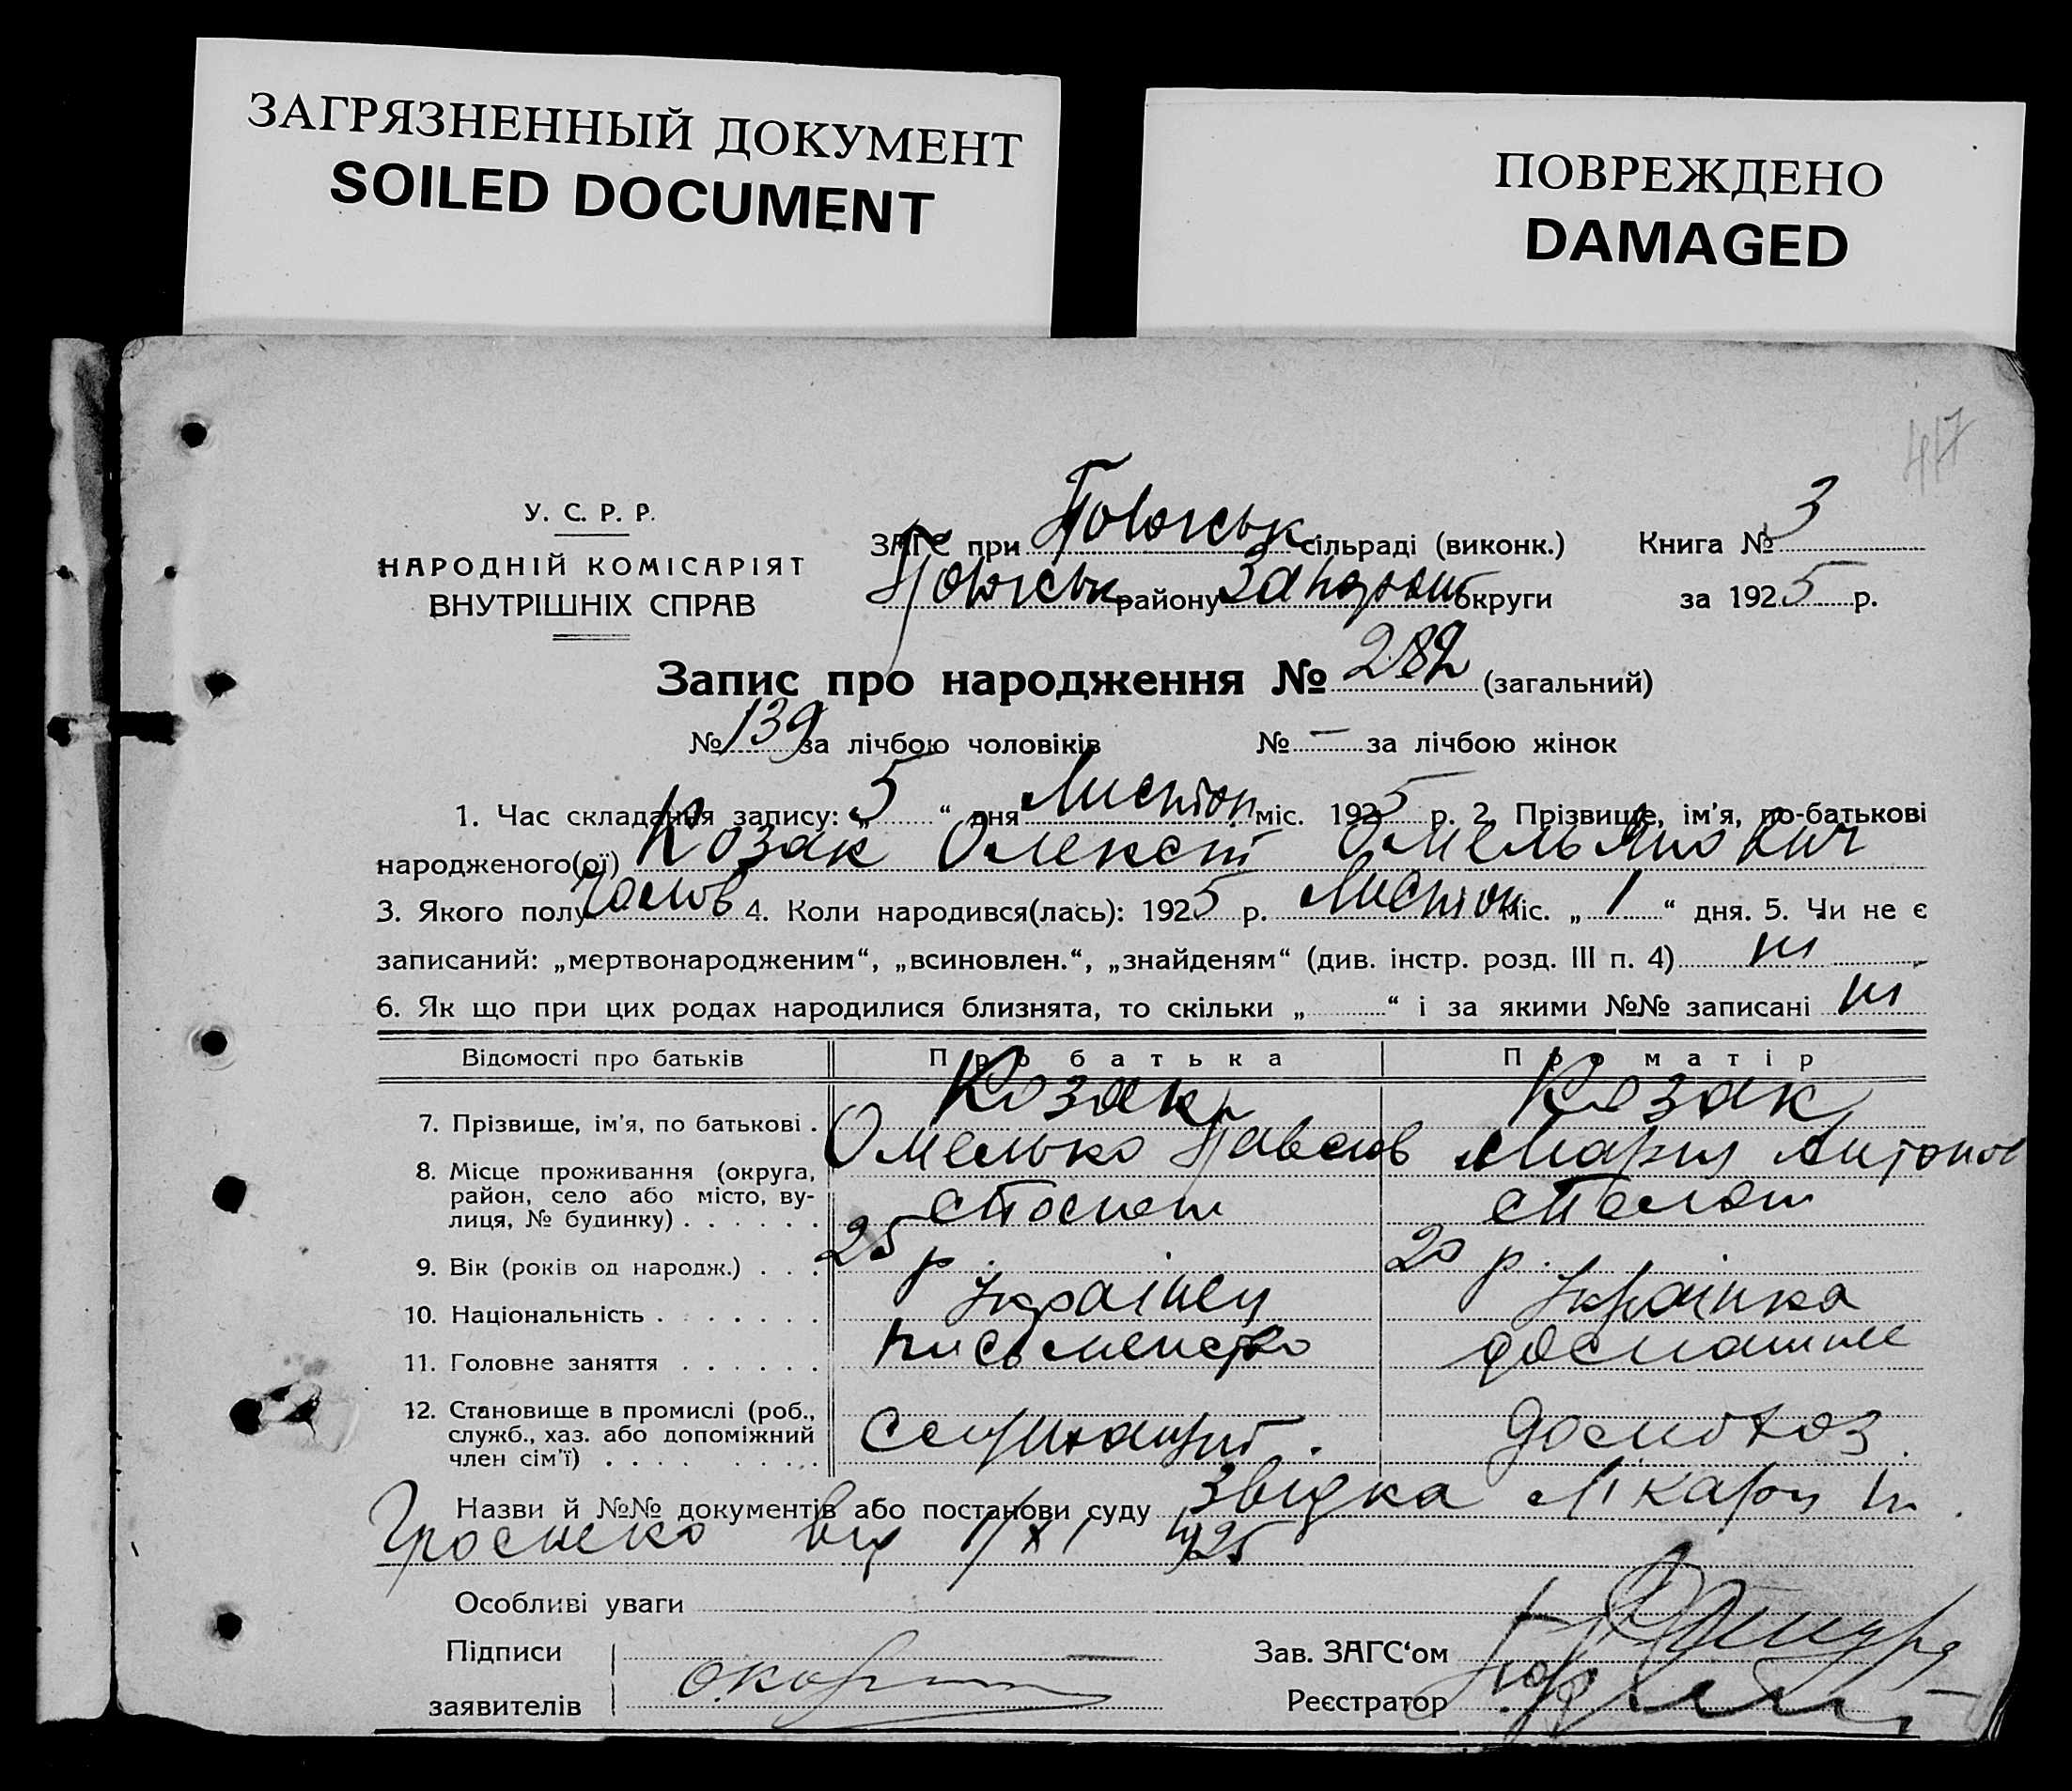 ЗАГРЯЗНЕННЫЙ ДОКУМЕНТ
SOILED DOCUMENT
ПОВРЕЖДЕНО
DAMAGED
417
У. С. Р. Р.
НАРОДНІЙ КОМІСАРІЯТ
ВНУТРІШНІХ СПРАВ
ЗАГС при сільраді (виконк.) Книга № 3
району округи за 1925 р.
Запис про народження № 282 (загальний)
№ 139 за лічбою чоловіків № — за лічбою жінок
1. Час складання запису: „5“ дня Листоп міс. 1925 р. 2. Прізвище, ім'я, по-батькові
народженого(ої) Козак Олексій Омельянович
3. Якого полу чолов 4. Коли народився(лась): 1925 р. Листоп міс. „1“ дня. 5. Чи не є
записаний: „мертвонародженим“, „всиновлен.“, „знайденям“ (див. інстр. розд. III п. 4) ні
6. Як що при цих родах народилися близнята, то скільки „ “ і за якими №№ записані ні
Відомості про батьків Про батька Про матір
7. Прізвище, ім'я, по батькові . Козак Козак
Омелько Павлов Мария Антонов
8. Місце проживання (округа,
район, село або місто, ву-
лиця, № будинку) . . . . . .
9. Вік (років од народж.) . . . 25 р. 20 р.
10. Національність . . . . . . . Українец Українка
11. Головне заняття . . . . . . письменство домашнє
12. Становище в промислі (роб.,
служб., хаз. або допоміжний
член сім'ї) . . . . . . . . . домохоз.
Назви й №№ документів або постанови суду Звідка Лікаря
від 1/XI 1925
Особливі уваги
Підписи
заявителів
Зав. ЗАГС‘ом
Реєстратор